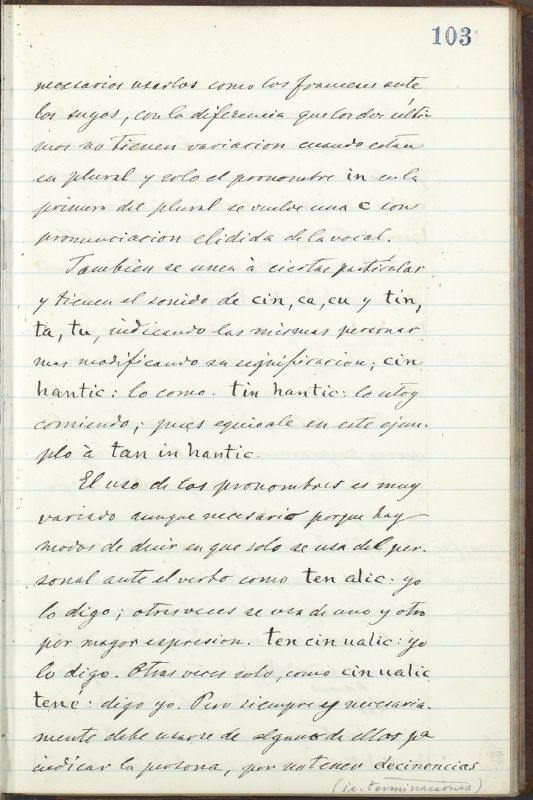 103
necesarios usarlos como los franceses ante
los suyos, con la diferencia que los dos últi-
mos no tienen variacion cuando estan
en plural y solo el pronombre in en la
primera del plural se vuelve una c con
pronunciacion elidida de la vocal.
Tambien se unen à ciertas particulas
y tienen el sonido de cin, ca, cu y tin,
ta, tu, indicando las mismas personas
mas modificando su significacion; cin
hantic: lo como. tin hantic: lo estoy
comiendo; pues equivale en este ejem-
plo à tan in hantic.
El uso de los pronombres es muy
variado aunque necesario porque hay
modos de decir en que solo se usa del per-
sonal ante el verbo como ten alic: yo
lo digo; otras veces se usa de uno y otro
por mayor espresion. ten cin ualic: yo
lo digo. Otras veces solo, como cin ualic
tene: digo yo. Pero siempre y necesaria-
mente debe usarse de alguno de ellos pa
indicar la persona, por no tener decinencias
(i.e. terminaciones)